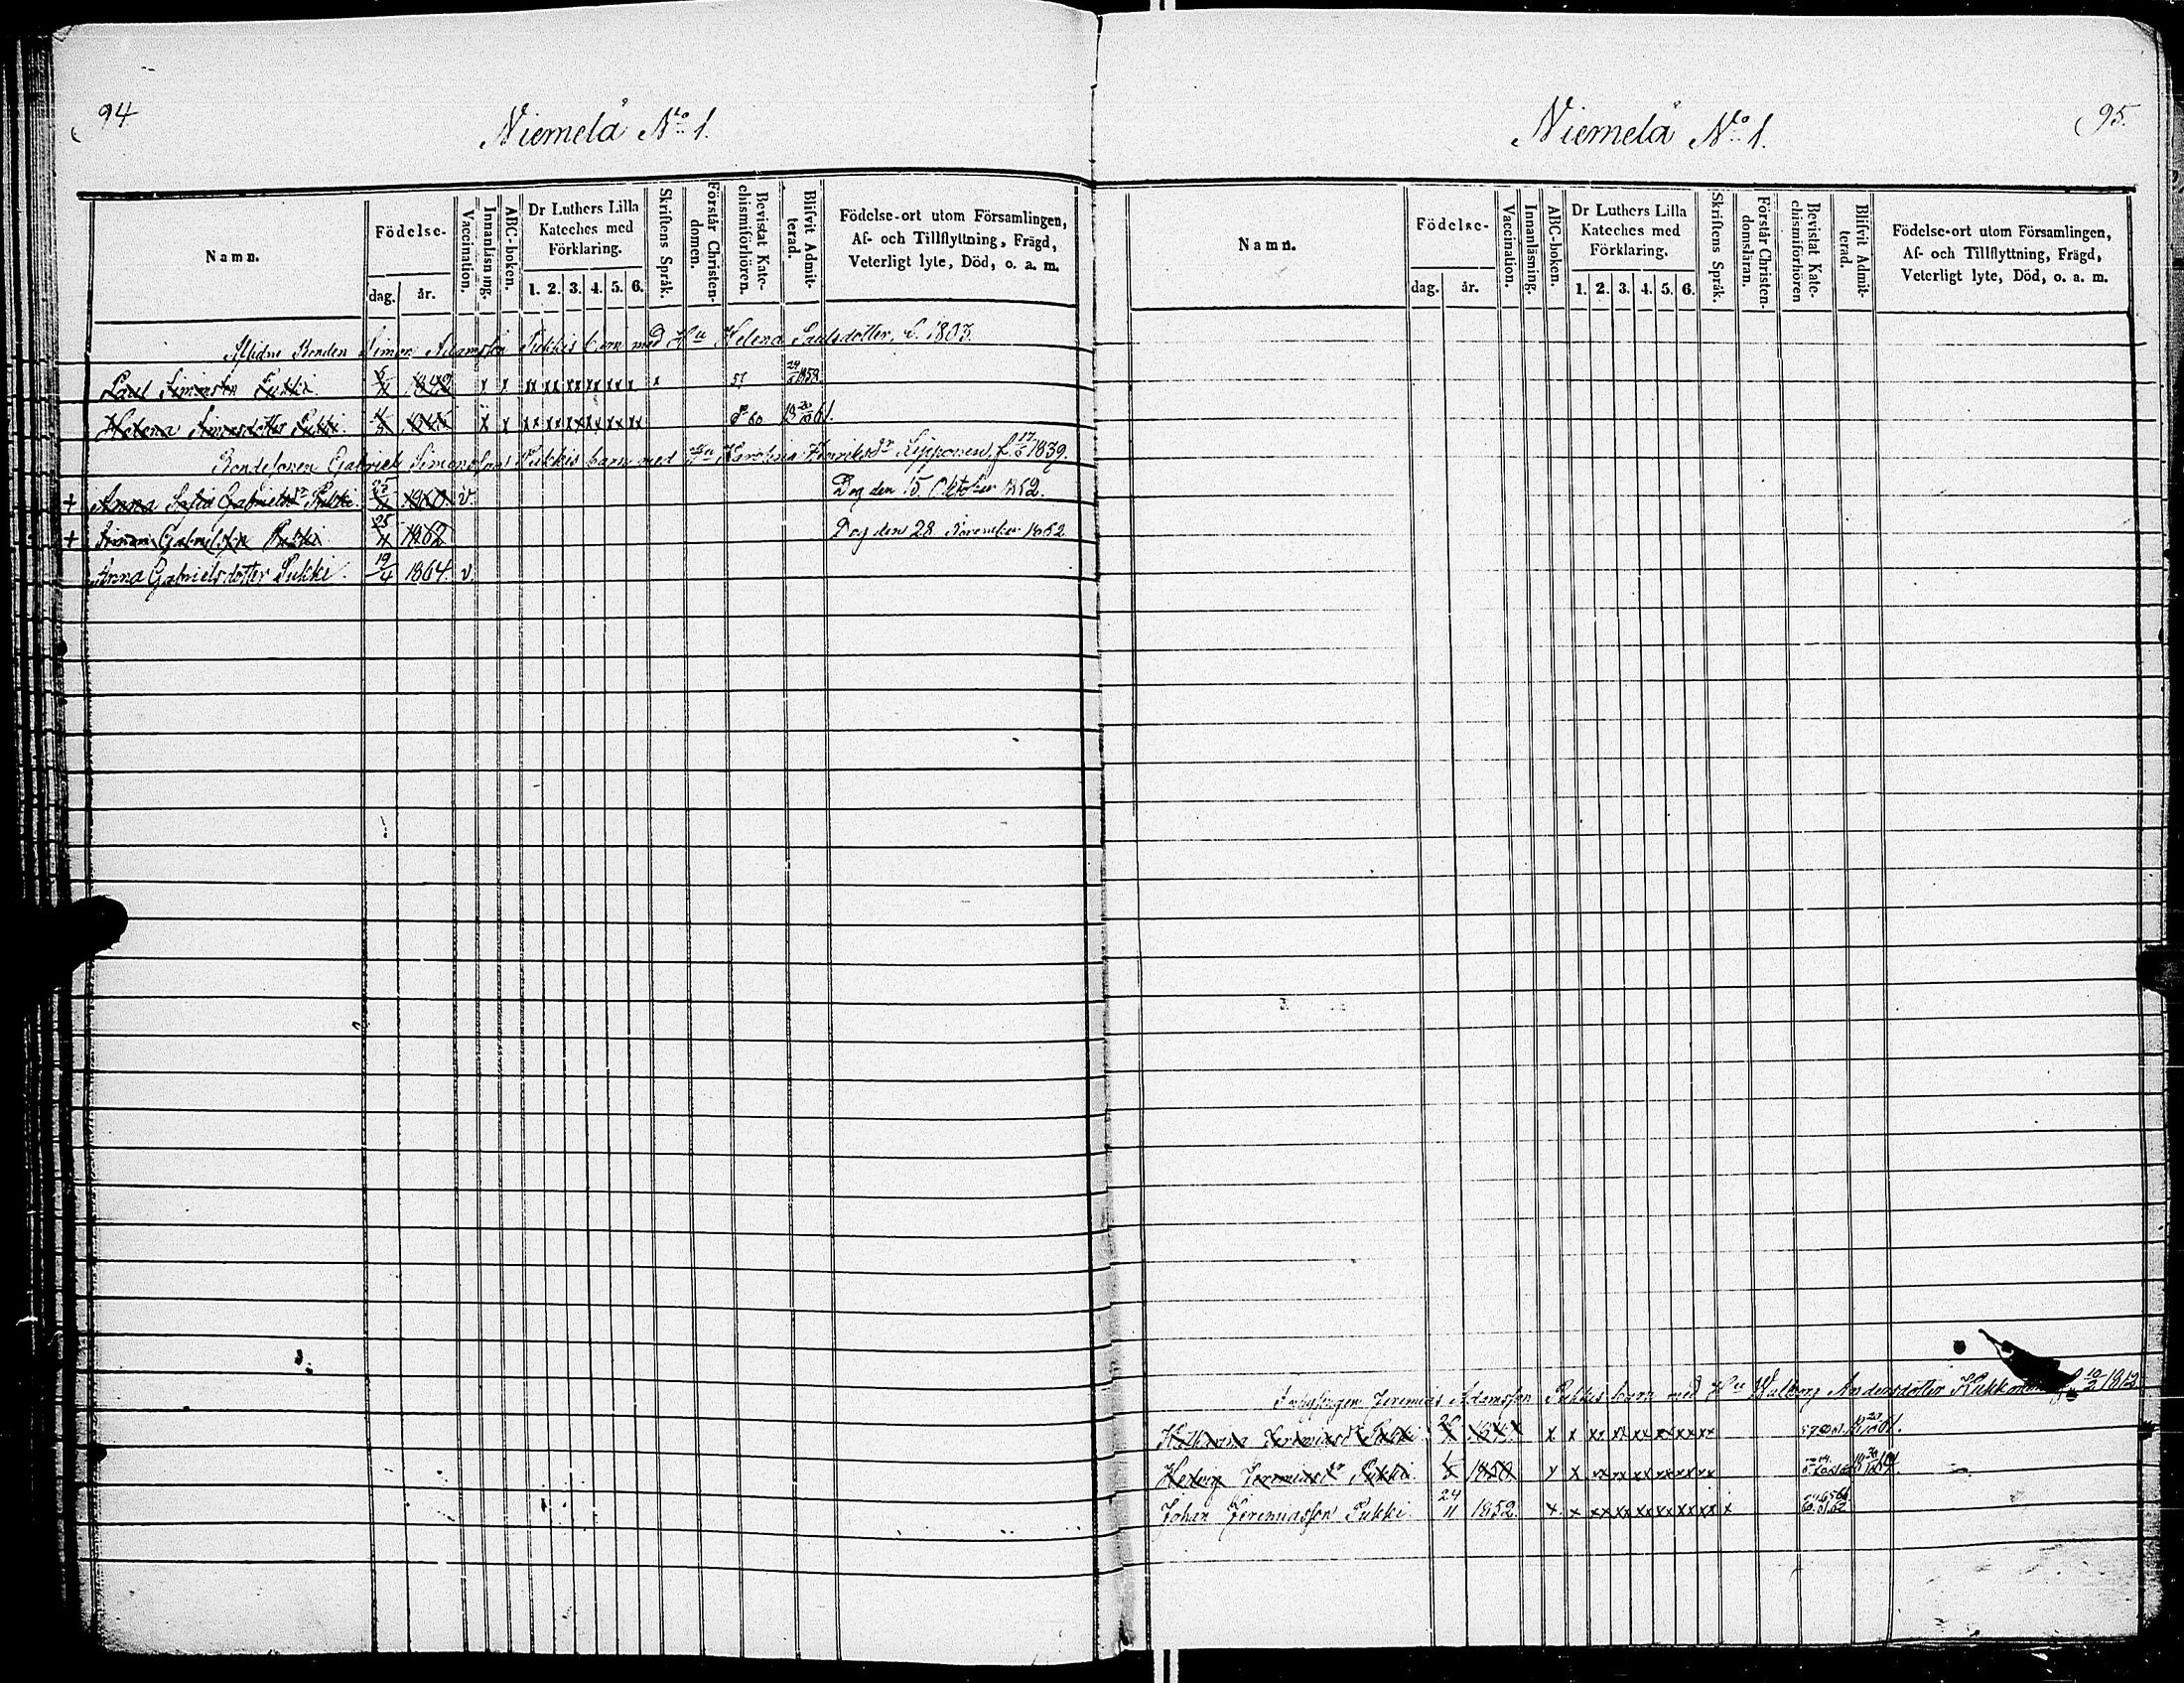 94
Niemelä N:o 1.
Namn.
Födelse-
dag. år.
Vaccination.
Innanläsning.
ABC-boken.
Dr Luthers Lilla
Kateches med
Förklaring.
1. 2. 3. 4. 5. 6.
Skriftens Språk.
Förstår Christen-
domen.
Bevistat Kate-
chismiförhören.
Blifvit Admit-
terad.
Födelse-ort utom Församlingen,
Af- och Tillflyttning, Frägd,
Veterligt lyte, Död, o. a. m.
Aflidne Bonden Simon Adamsson Pukkis barn med Hu Helena Paulsdotter, f. 1803.
Paul Simonson Pukki 1842 x x xx xx xx xx xx x x 57
Helena Simonsdotter Pukki x x xx xx xx xx xx xx
Bondesonen Gabriel Simonsson Pukkis barn med Hu Karolina Henriksdr f. 17/5 1839.
+ Anna Sofia Gabrielsdr Pukki 1860 v. Dog den 15 Oktober 1862.
+ Simon Gabrielsson Pukki 25/11 1862 Dog den 28 November 1862
Anna Gabrielsdotter Pukki. 19/4 1864. v.
95.
Niemelä N:o 1.
Namn.
Födelse-
dag. år.
Vaccination.
Innanläsning.
ABC-boken.
Dr Luthers Lilla
Kateches med
Förklaring.
1. 2. 3. 4. 5. 6.
Skriftens Språk.
Förstår Christen-
domsläran.
Bevistat Kate-
chismiförhören
Blifvit Admit-
terad.
Födelse-ort utom Församlingen,
Af- och Tillflyttning, Frägd,
Veterligt lyte, Död, o. a. m.
Jeremias Adamsson Pukkis barn med Hu Walborg Andersdotter f. 10/2 1812
Katharina Jeremiasdr Pukki x x xx xx xx xx xx xx
Hedvig Jeremiasdr Pukki 1850 x x xx xx xx xx xx xx
Johan Jeremiasson Pukki 24/11 1852. x x xx xx xx xx xx xx x